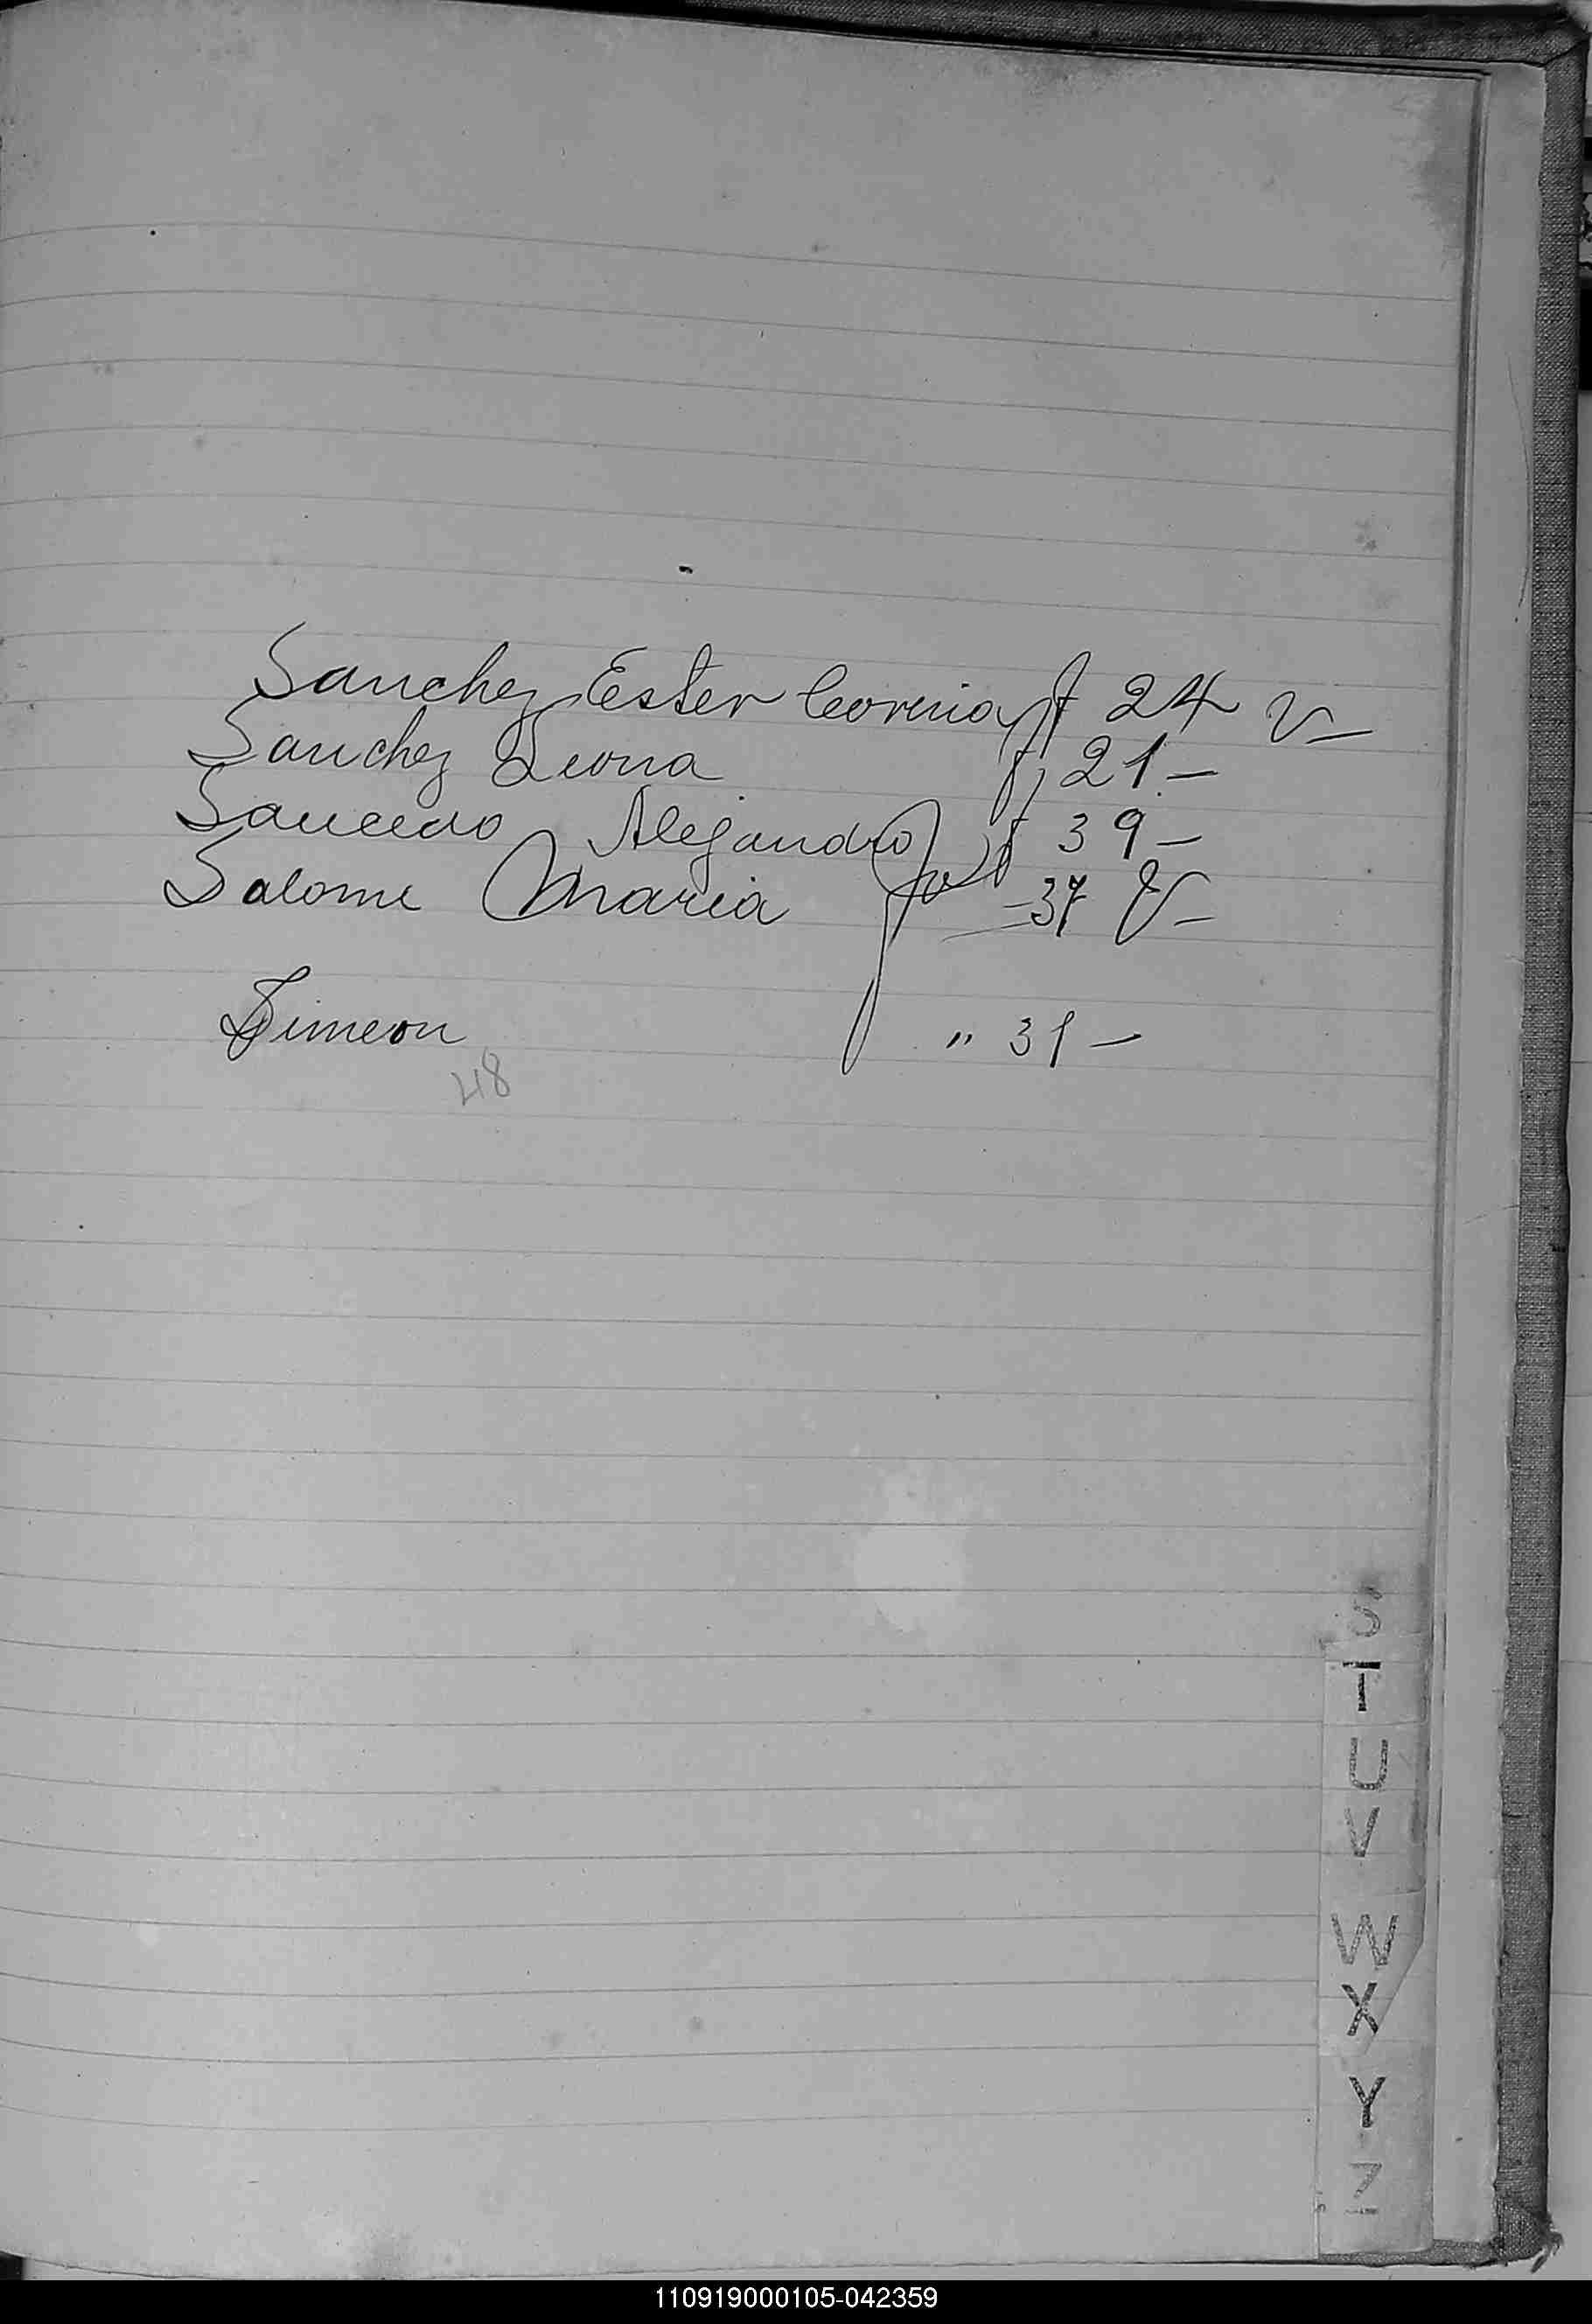 Sanchez Ester Corina f 24 v—
Sanchez Leona f, 21—
Saucedo Alejandro f 39—
Salome Maria —37 v—
Simeon " 31—
48
S
T
U
V
W
X
Y
Z
110919000105-042359